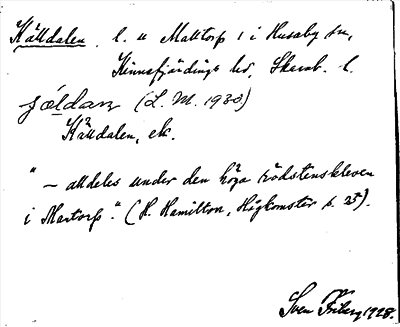 Källdalen, l. u Mattorp 1 i Husaby sn,
Kinnefjärdings hd, Skarab. l.
jäldan (L. M. 1930)
Källdalen, ek.
"– alldeles under den höga rödstenskleven
i Martorp". (H. Hamilton, Hågkomster s. 25).
Sven Friberg 1928.